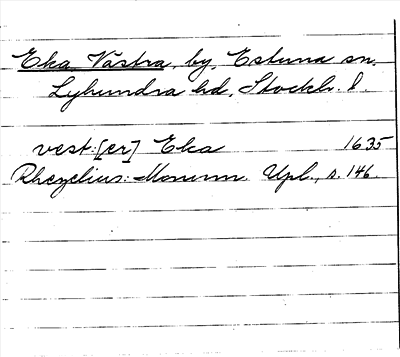 Eka, Västra, by, Estuna sn,
Lyhundra hd, Stockh. l.
vest:[er] Eka 1635
Rhezelius: Monum. Upl., s. 146.